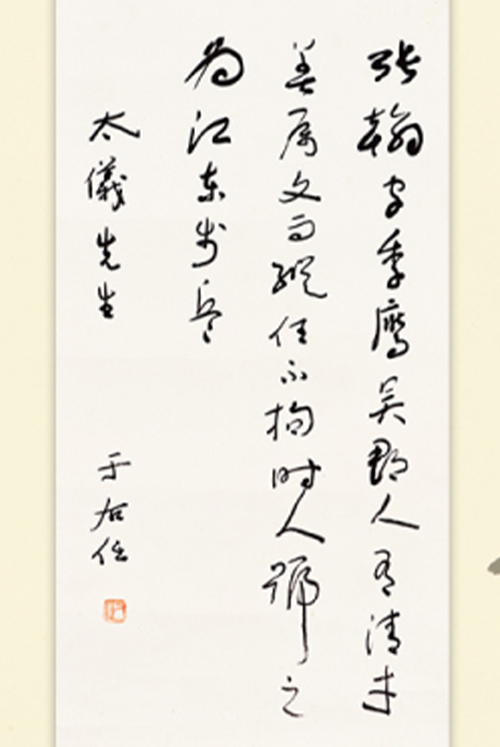 张翰字季鹰吴郡人有清才
善属文而縱任不拘时人号之
为江东步兵
太儀先生
于右任